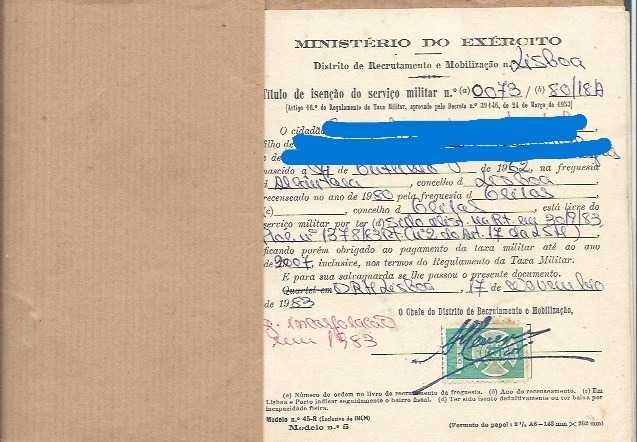 MINISTÉRIO DO EXÉRCITO
Distrito de Recrutamento e Mobilização n. Lisboa
Título de isenção do serviço militar n.º (a) 0073 / (b) 80/18A
(Artigo 16.º do Regulamento da Taxa Militar, aprovado pelo Decreto n.º 39146, de 24 de Março de 1953)
O cidadão
filho de
e de
nascido a de de 1962, na freguesia
d Alcântara, concelho d Lisboa
recenseado no ano de 1980 pela freguesia d Oeiras
(c), concelho d Oeiras, está livre do
serviço militar por ter (d) sido alist. na R.T. em 30/9/83
(n.º 2 do Art. 17 da LSM)
ficando porém obrigado ao pagamento da taxa militar até ao ano
de 2007, inclusive, nos termos do Regulamento da Taxa Militar.
E para sua salvaguarda se lhe passou o presente documento.
Quartel em DRM Lisboa, 17 de Novembro
de 1983
O Chefe do Distrito de Recrutamento e Mobilização,
Incorporação
em 1983
(a) Número de ordem no livro de recrutamento da freguesia. (b) Ano de recenseamento. (c) Em
Lisboa e Porto indicar seguidamente o bairro fiscal. (d) Ter sido isento definitivamente ou ter baixa por
incapacidade física.
Modelo n.º 45-R (Exclusivo da INCM)
Modelo n.º 5
(Formato do papel: A5-148 mm × 262 mm)